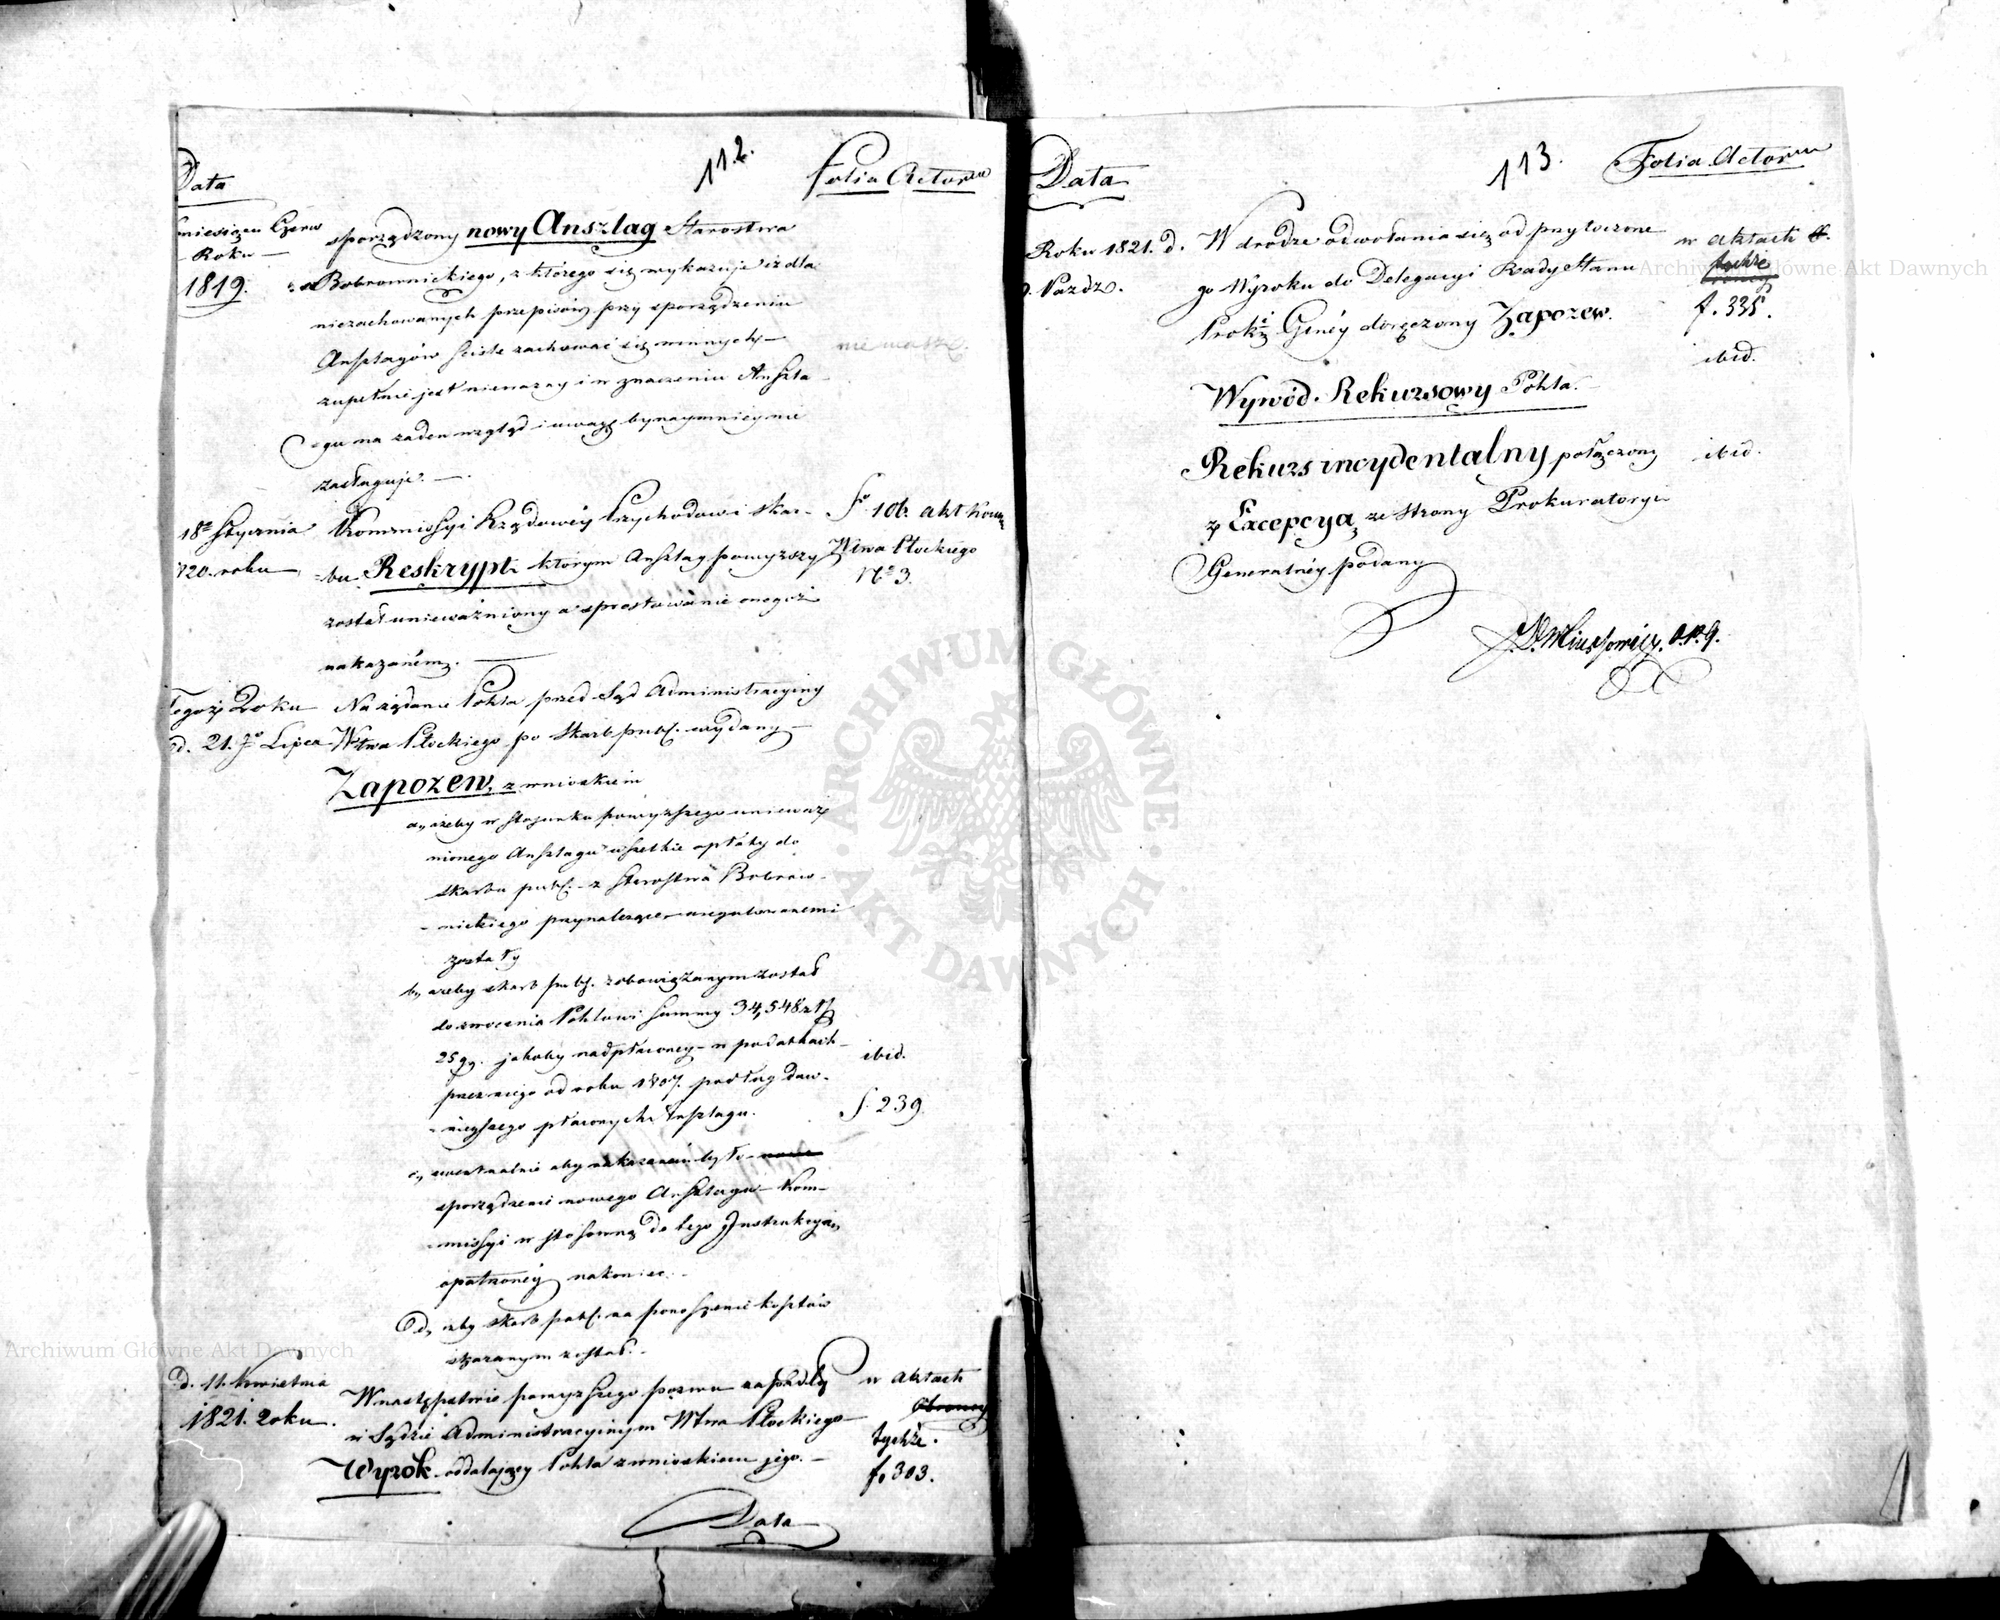 112.
Data
Folia Actorum
miesiącu Czerw
Roku
1819.
sporządzony nowy Anszlag Starostwa
Bobrownickiego, z którego się wykazuje iż dla
niezachowanych przepisów przy sporządzeniu
Anszlagów ściśle zachować się winnych
zupełnie jest nieważny i w znaczeniu Anszla
gu na żaden wzgląd i uwagę bynaymniey nie
zasługuje.
nie masz.
18 Stycznia
820. roku
Kommissyi Rządowéy Przychodów i Skar-
bu Reskrypt którym Anszlag powyższy
został unieważniony a sprostowanie onegoż
nakazaném.
f. 106 akt Kom
Wtwa Płockiego
No 3.
Tegoż Roku
d. 21. Lipca
Na żądanie Pohla przed Sąd Administracyiny
Wtwa Płockiego po Skarb publ. wydany
Zapozew, z wnioskiem
a, ażeby w stosunku powyższego unieważ
nionego Anszlagu wszelkie opłaty do
skarbu publ. z Starostwa Bobrow-
nickiego przynależące uregulowanemi
zostały
b, ażeby skarb publ. zobowiązanym został
do zwrócenia Pohlowi summy 34,548 złp
25 gr. jakoby nadpłaconey w podatkach
przez niego od roku 1807. podług daw-
nieyszego płaconych Anszlagu.
ibid.
f. 239.
c, ewentualnie aby nakazanem było
sporządzenie nowego Anszlagu Kom-
missyi w stosowną do tego Instrukcyą
opatrzonéy nakoniec.
d, aby skarb publ. na ponoszenie kosztów
skazanym został.
d. 11. Kwietnia
1821. roku.
W następstwie powyższego pozwu zapadły
w Sądzie Administracyinym Wtwa Płockiego
Wyrok oddalający Pohla z wnioskiem jego.
w aktach
tychże.
f. 303.
Data
113.
Data
Folia Actorum
Roku 1821. d.
Paźdz.
W drodze odwołania się od przytoczone
go Wyroku do Delegacyi Rady Stanu
Prok. Genéy doręczony Zapozew.
w aktach
tychże
f. 335.
Wywód Rekursowy Pohla.
ibid.
Rekurs incydentalny połączony
z Excepcyą ze strony Prokuratoryi
Generalnéy podany
ibid.